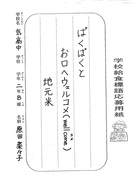 学校給食標語応募用紙
ぱくぱくと
お口へウェルコメ(welcome)
地元米
学校名 気高中 学校 学年 二年B組 氏名 原田 菜々子